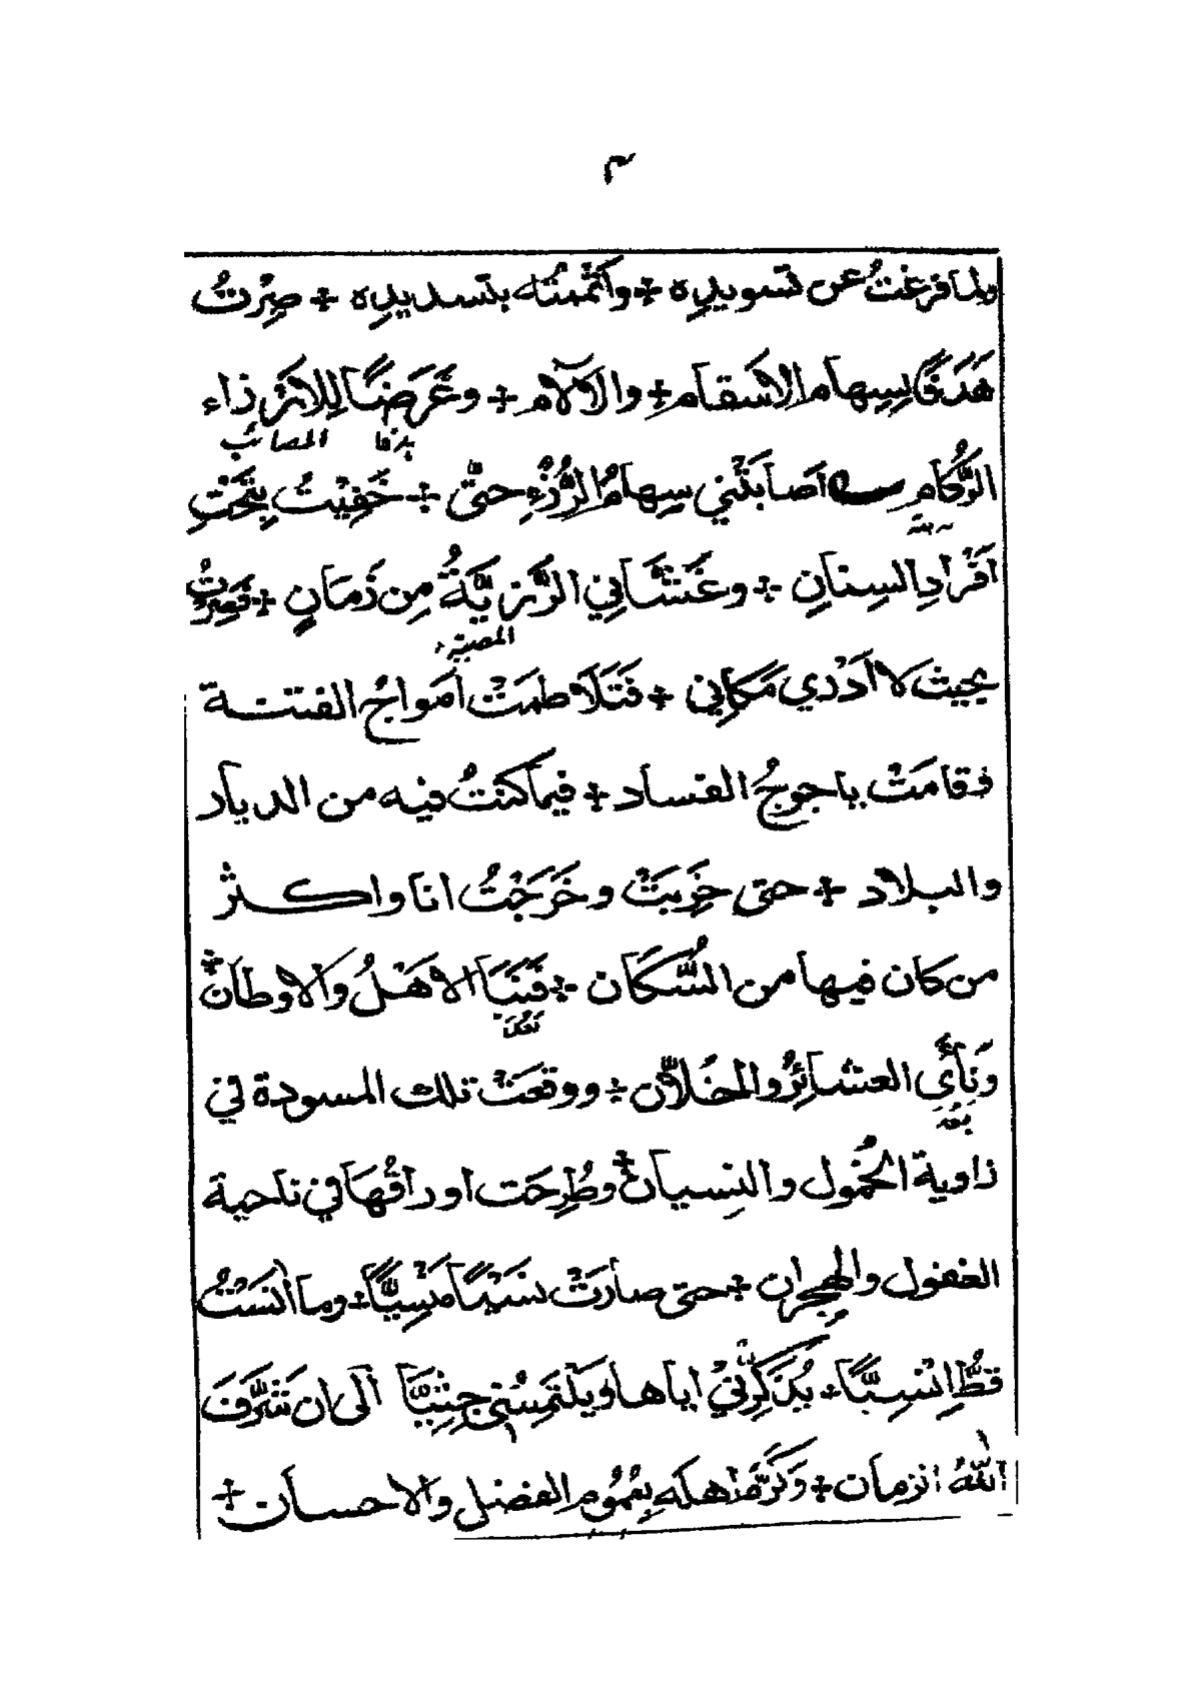 ٣
ولما فرغتُ عن تسويدِه + وأتْممتُه بتسديدِه + صِرْتُ
هَدَفًا لِسِهامِ الاَسقام + والآلام + وغَرَضًا لِلاَرْزاء
المصائب
الرُّكامِ اَصابَتْني سِهامُ الرُّزْءِ حتّى + خَفِيْتُ بِتَحْتِ
اَفْرادِ السِنانِ + وغَشَّاني الرَّزِيَّةُ مِن زَمَانٍ + فَصِرْتُ
المصيبة
بحيث لا اَدْري مَكاني + فَتَلَاطمَتْ اَمواجُ الفتنة
فقامَتْ ياجوجُ الفساد + فيما كنتُ فيه من الديار
والبلاد + حتى خرِبَتْ وخَرَجْتُ انا واكثر
من كان فيها من السُّكَّان + فَنَبَا الاَهْلُ والاوطانُ +
ونَأَى العشائِرُ والخُلاّن + ووقعَتْ تلك المسودة في
بعد
زاوية الخُمول والنِسيان + وطُرِحَت اوراقُها في ناحية
الغفول والهِجران + حتى صارَتْ نَسْيًا مَنْسِيًّا + وما اٰنَسْتُ
قطُّ اِنْسِيًّا + يُذَكِّرُني اياها ويَلْتَمِسُني جِنِّيًّا الى ان شَرَّفَ
اللهُ الزمان + وكَرَّمَ اهلَه بِعُمُومِ الفضل والاحسان +